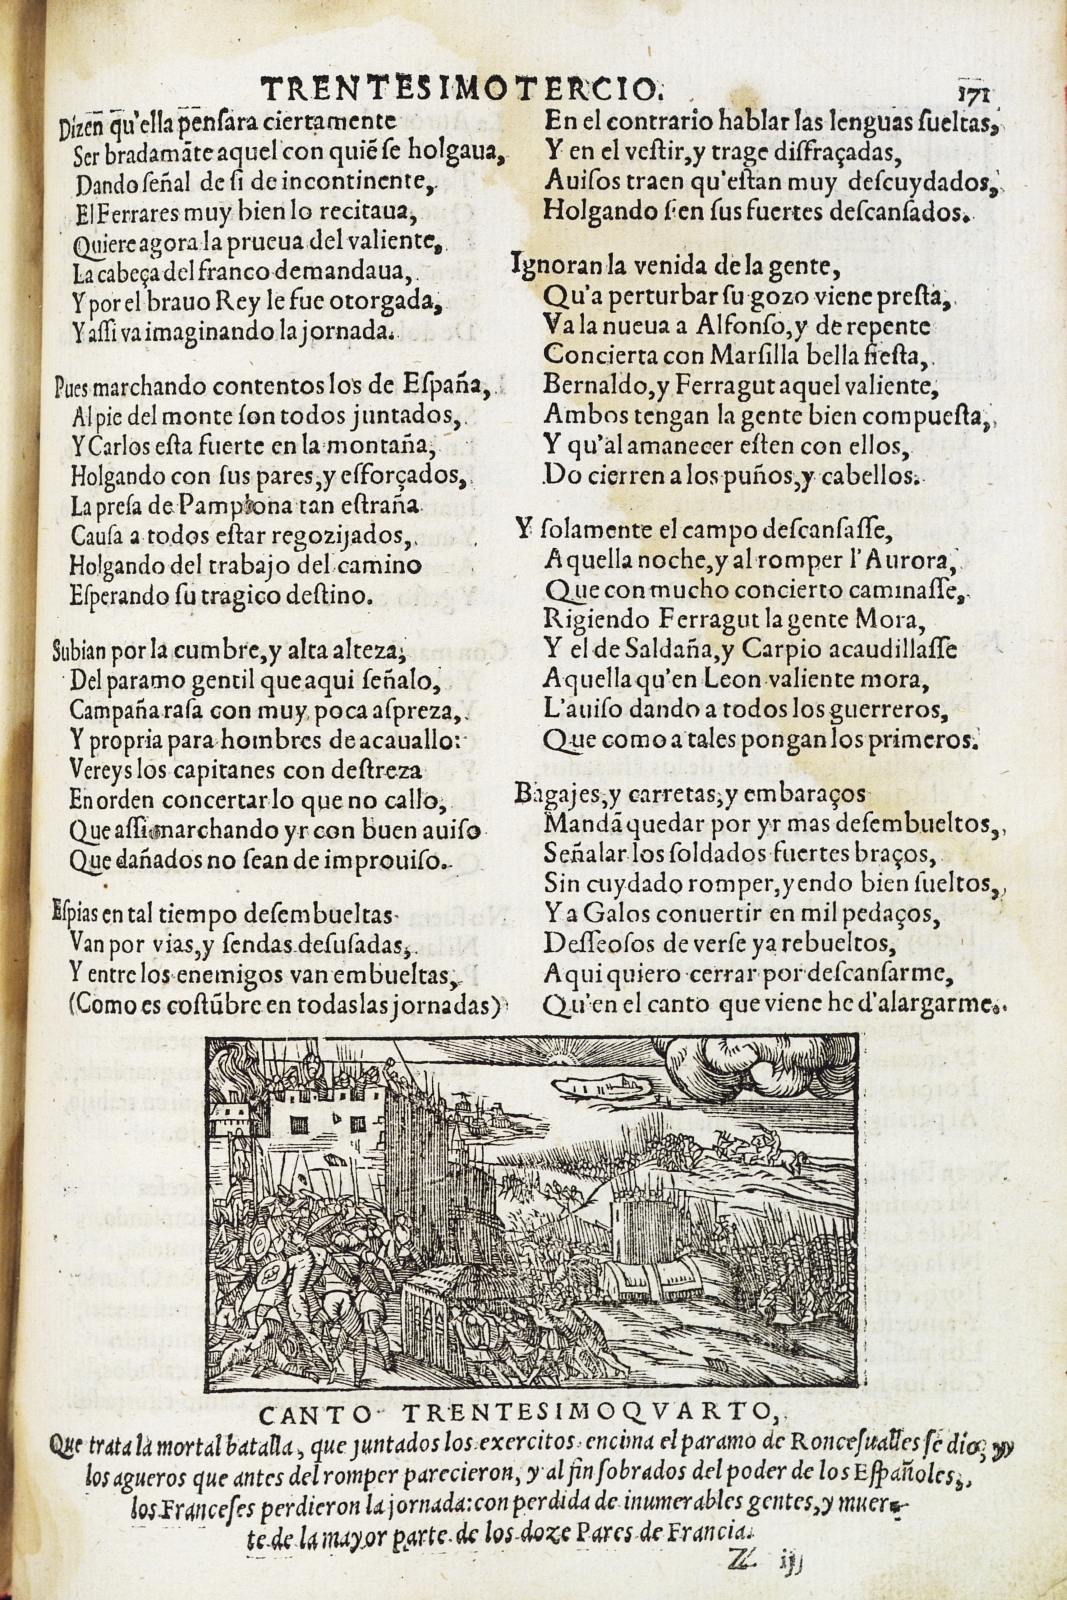 TRENTESIMOTERCIO.
171
Dizen qu'ella pensara ciertamente
Ser bradamãte aquel con quiẽ se holgaua,
Dando señal de si de incontinente,
El Ferrares muy bien lo recitaua,
Quiere agora la prueua del valiente,
La cabeça del franco demandaua,
Y por el brauo Rey le fue otorgada,
Y assi va imaginando la jornada.
Pues marchando contentos los de España,
Al pie del monte son todos juntados,
Y Carlos esta fuerte en la montaña,
Holgando con sus pares, y esforçados,
La presa de Pamplona tan estraña
Causa a todos estar regozijados,
Holgando del trabajo del camino
Esperando su tragico destino.
Subian por la cumbre, y alta alteza,
Del paramo gentil que aqui señalo,
Campaña rasa con muy poca aspreza,
Y propria para hombres de acauallo:
Vereys los capitanes con destreza
En orden concertar lo que no callo,
Que assi marchando yr con buen auiso
Que dañados no sean de improuiso.
Espias en tal tiempo desembueltas
Van por vias, y sendas desusadas,
Y entre los enemigos van embueltas,
(Como es costũbre en todas las jornadas)
En el contrario hablar las lenguas sueltas,
Y en el vestir, y trage disfraçadas,
Auisos traen qu'estan muy descuydados,
Holgandosi en sus fuertes descansados.
Ignoran la venida de la gente,
Qu'a perturbar su gozo viene presta,
Va la nueua a Alfonso, y de repente
Concierta con Marsilla bella fiesta,
Bernaldo, y Ferragut aquel valiente,
Ambos tengan la gente bien compuesta,
Y qu'al amanecer esten con ellos,
Do cierren a los puños, y cabellos.
Y solamente el campo descansasse,
Aquella noche, y al romper l'Aurora,
Que con mucho concierto caminasse,
Rigiendo Ferragut la gente Mora,
Y el de Saldaña, y Carpio acaudillasse
Aquella qu'en Leon valiente mora,
L'auiso dando a todos los guerreros,
Que como a tales pongan los primeros.
Bagajes, y carretas, y embaraços
Mandã quedar por yr mas desembueltos,
Señalar los soldados fuertes braços,
Sin cuydado romper, yendo bien sueltos,
Y a Galos conuertir en mil pedaços,
Desseosos de verse ya rebueltos,
Aqui quiero cerrar por descansarme,
Qu'en el canto que viene he d'alargarme.
CANTO TRENTESIMOQVARTO,
Que trata la mortal batalla, que juntados los exercitos encima el paramo de Roncesualles se dio, y
los agueros que antes del romper parecieron, y al fin sobrados del poder de los Españoles,
los Franceses perdieron la jornada: con perdida de inumerables gentes, y muer-
te de la mayor parte de los doze Pares de Francia.
Z ij